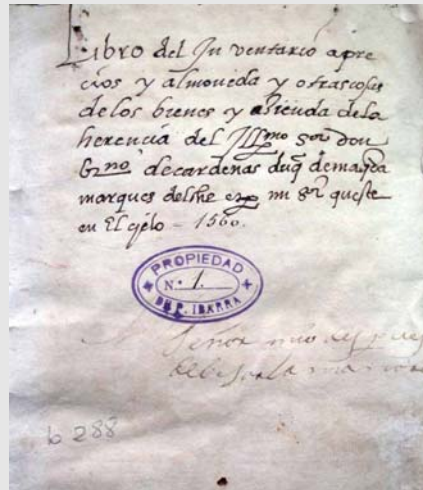 Libro del Inventario apre
cios y almoneda y otras cosas
de los bienes y azienda de la
herencia del Illmo Sor don
brno decardenas duq de maqda
marques delche  mi Sr queste
en El çielo - 1560.
PROPIEDAD
N.º 1.
DE P. IBARRA
Señor
b 288